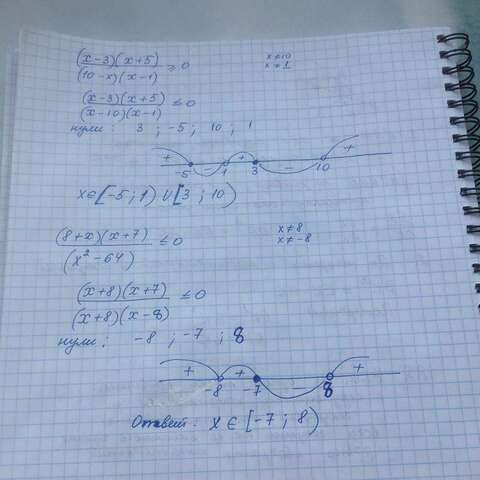 (x-3)(x+5)/(10-x)(x-1) ≥ 0 x≠10
x≠1
(x-3)(x+5)/(x-10)(x-1) ≤ 0
нули: 3 ; -5 ; 10 ; 1
+ - + - +
-5 1 3 10
x∈[-5 ; 1) ∪ [3 ; 10)
(8+x)(x+7)/(x²-64) ≤ 0 x≠8
x≠-8
(x+8)(x+7)/(x+8)(x-8) ≤ 0
нули: -8 ; -7 ; 8
+ + - +
-8 -7 8
Ответ: x ∈ [-7 ; 8)